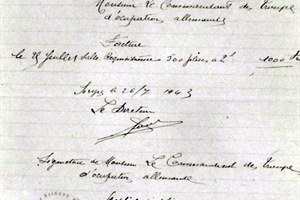 Monsieur Le Commandant des Troupes
d'occupation allemandes
Facture
le 25 Juillet 500 pièces à 2f 1000
le 26/7 1943
Le Directeur
Signature de Monsieur Le Commandant des Troupes
d'occupation allemande